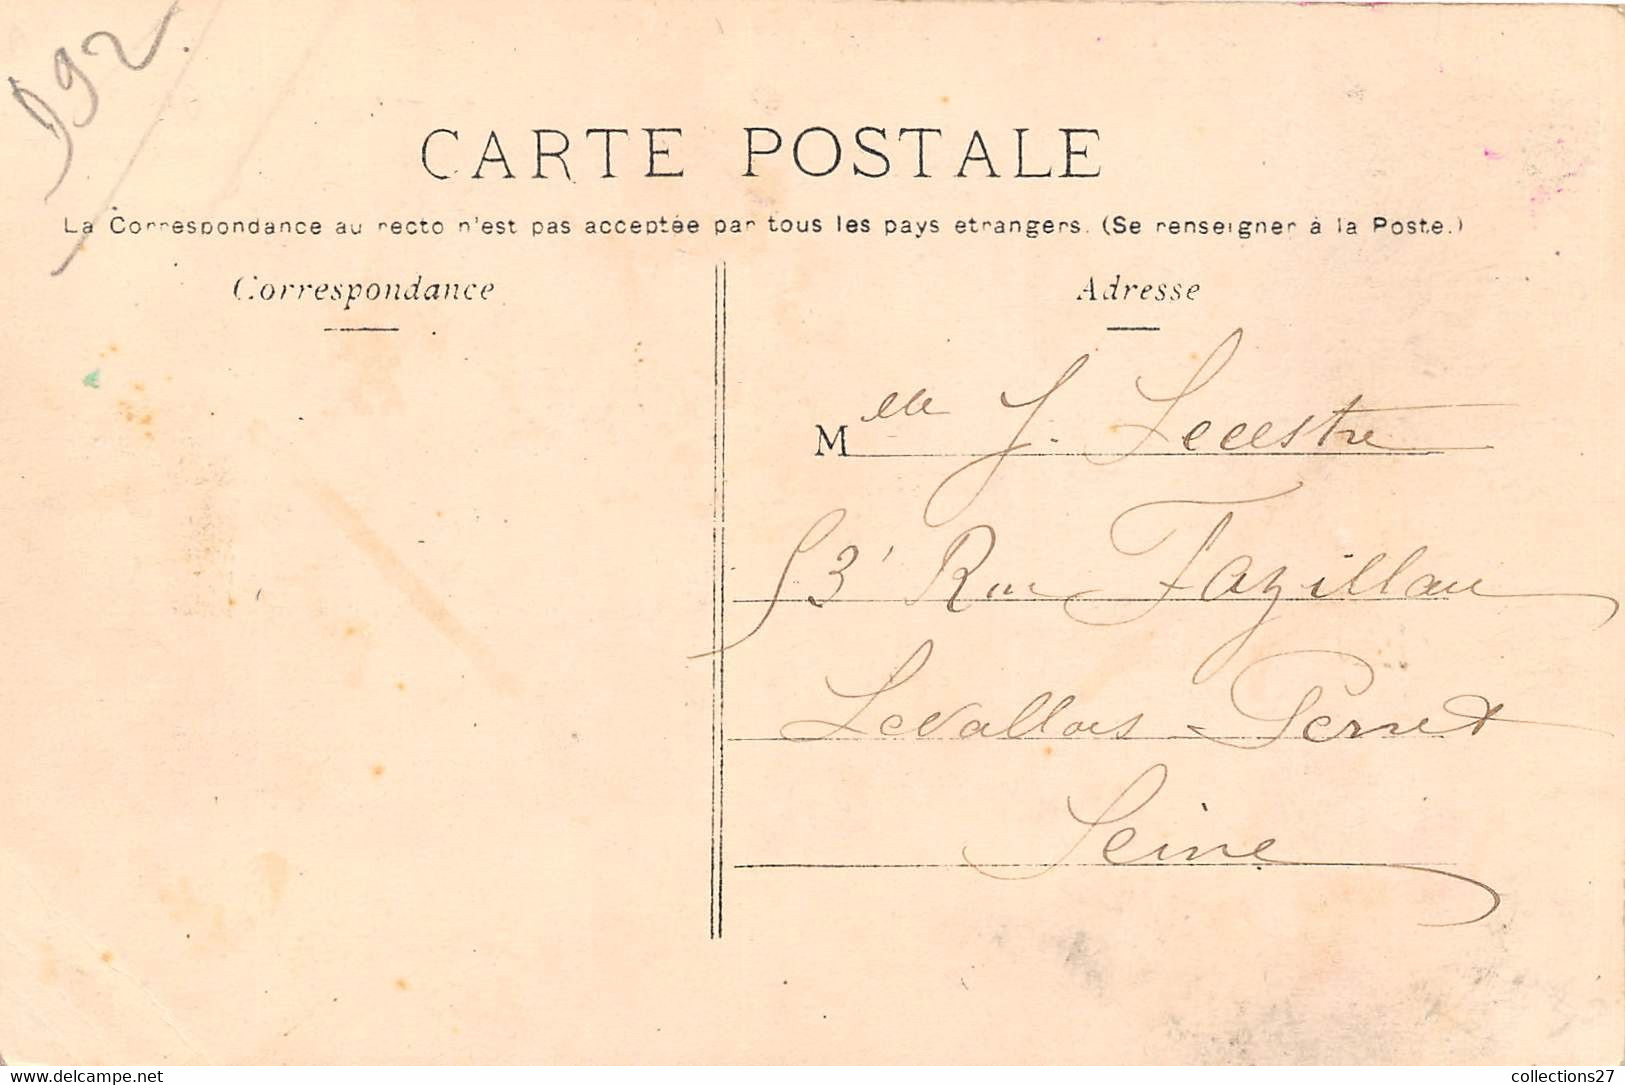 992
CARTE POSTALE
La Correspondance au recto n'est pas acceptée par tous les pays etrangers. (Se renseigner à la Poste.)
Correspondance
Adresse
Melle J. Lecestre
53 Rue Fazillau
Levallois-Perret
Seine
www.delcampe.net
collections27